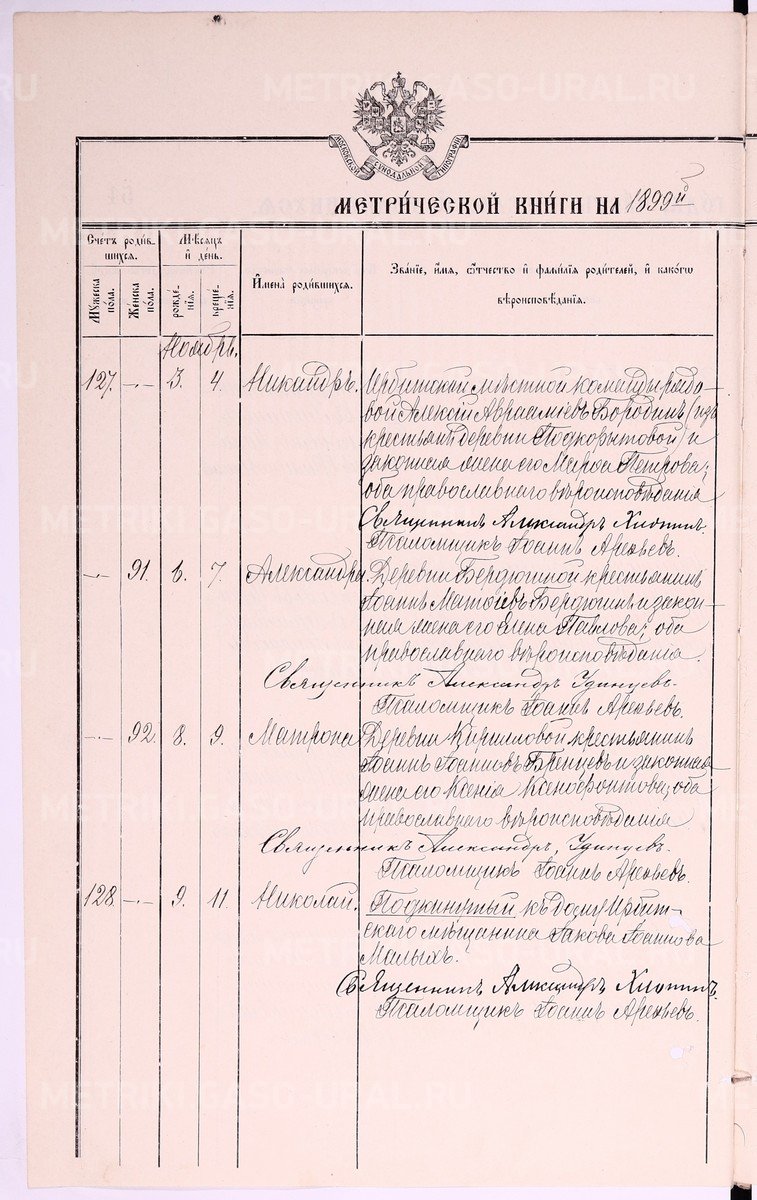 МОСКОВСКОЙ СѴНОДАЛЬНОЙ ТИПОГРАФІИ
МЕТРИ́ЧЕСКОЙ КНИ́ГИ НА 1899й
Счетъ роди́вшихся.
Мѣсяцъ и҆ день.
И҆мена̀ роди́вшихся.
Зва́нїе, и҆́мѧ, ѻ҆́тчество и҆ фамилїѧ роди́телей, и҆ како́гѡ
вѣроисповѣ́данїѧ.
Мꙋ́жеска по́ла.
Же́нска по́ла.
рожде́нїѧ.
креще́нїѧ.
Ноябрь.
127. —·— 3. 4. Никандръ. Ирбитской мѣстной команды рядо-
вой Алексій Авраамiевъ Бородинъ (изъ
крестьянъ деревни Подкорытовой) и
законная жена его Марѳа Петрова;
оба православнаго вѣроисповѣданія
Священникъ Александръ Хлопинъ.
Псаломщикъ Іоаннъ Арефьевъ.
—·— 91. 6. 7. Александра. Деревни Бердюгиной крестьянинъ
Іоаннъ Матѳіевъ Бердюгинъ и закон-
ная жена его Елена Павлова; оба
православнаго вѣроисповѣданія.
Священникъ Александръ Удинцевъ.
Псаломщикъ Іоаннъ Арефьевъ.
—·— 92. 8. 9. Матрона. Деревни Кирилловой крестьянинъ
Іоаннъ Іоанновъ Бренцевъ и законная
жена его Ксенія Ксенофонтова; оба
православнаго вѣроисповѣданія
Священникъ Александръ Удинцевъ.
Псаломщикъ Іоаннъ Арефьевъ.
128. —·— 9. 11. Николай. Подкинутый къ дому Ирбит-
скаго мѣщанина Іакова Іоаннова
Малыхъ.
Священникъ Александръ Хлопинъ.
Псаломщикъ Іоаннъ Арефьевъ.
METRIKI.GASO-URAL.RU